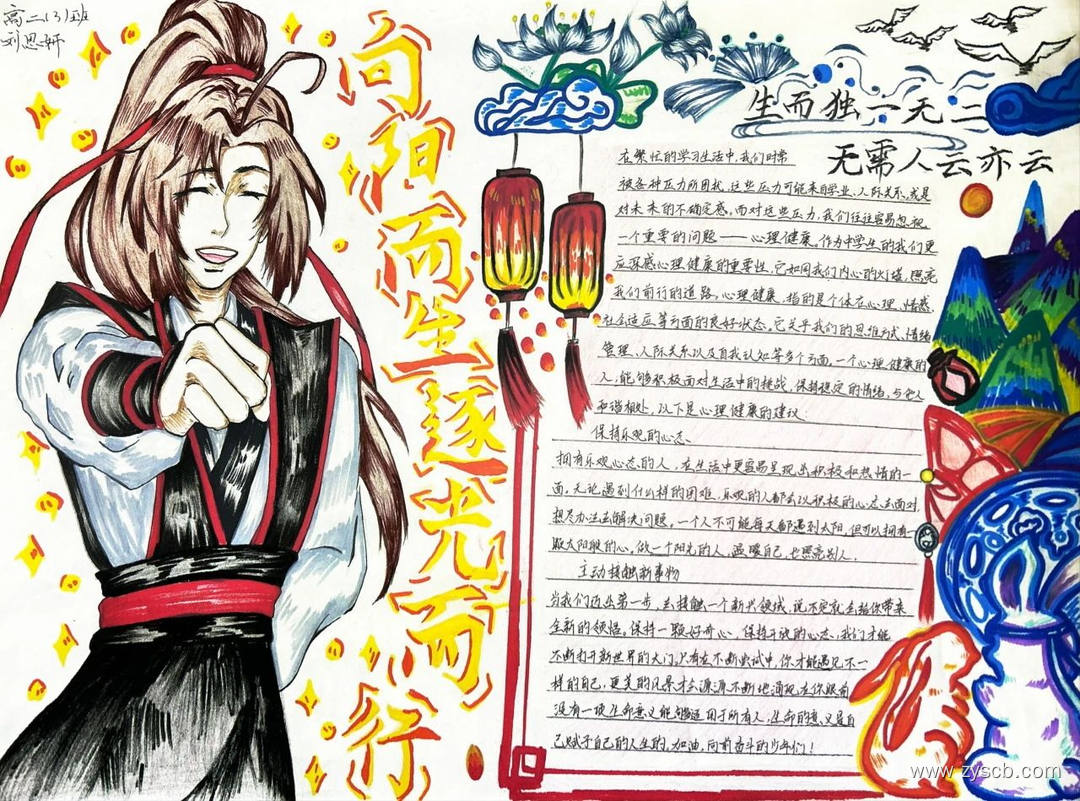 高二(3)班
刘思妍
向阳而生逐光而行
生而独一无二
无需人云亦云
在繁忙的学习生活中,我们时常
被各种压力所困扰,这些压力可能来自学业、人际关系,或是
对未来的不确定感,而对这些压力,我们往往容易忽视
一个重要的问题——心理健康。作为中学生的我们更
应深感心理健康的重要性,它如同我们内心的灯塔,照亮
我们前行的道路。心理健康,指的是个体在心理、情感、
社会适应等方面的良好状态,它关乎我们的思维方式、情绪
管理、人际关系以及自我认知等多个方面,一个心理健康的
人,能够积极面对生活中的挑战,保持稳定的情绪,与他人
和谐相处,以下是心理健康的建议.
保持乐观的心态、
拥有乐观心态的人,在生活中更容易呈现出积极和热情的一
面,无论遇到什么样的困难,乐观的人都会以积极的心态去面对,
想尽办法去解决问题,一个人不可能每天都遇到太阳,但可以拥有一
颗太阳般的心,做一个阳光的人,温暖自己,也照亮别人.
主动接触新事物
当我们迈出第一步,去接触一个新兴领域,说不定就会给你带来
全新的领悟。保持一颗好奇心,保持开放的心态,我们才能
不断打开新世界的大门,只有在不断尝试中,你才能遇见不一
样的自己,更美的风景才会源源不断地涌现在你眼前
没有一项生命意义能够适用于所有人,生命的意义是自
己赋予自己的人生的,加油,向前奋斗的少年们!
www.zyscb.com